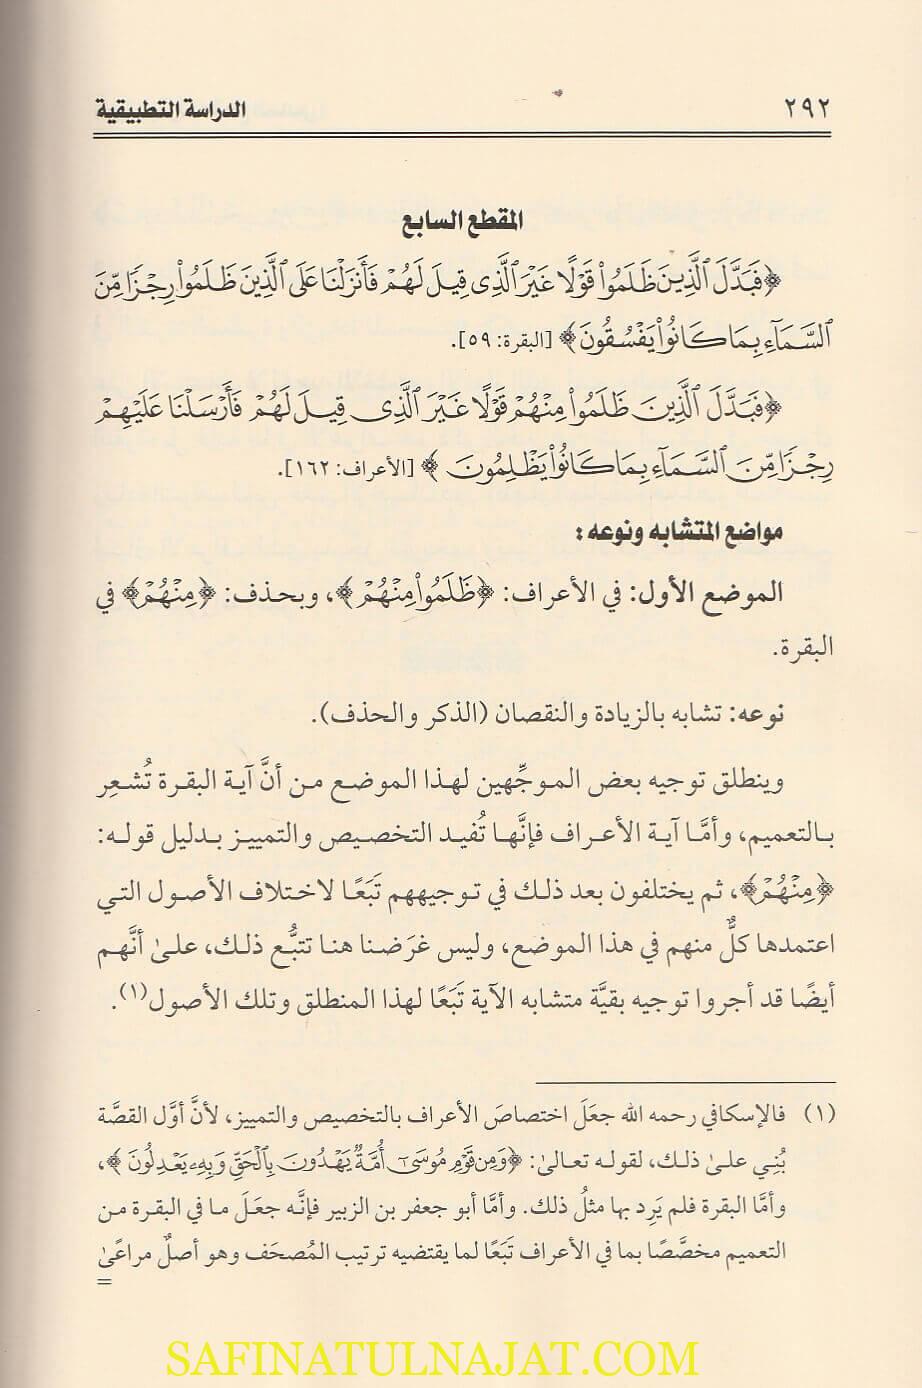 ٢٩٢ الدراسة التطبيقية
المقطع السابع
﴿فَبَدَّلَ ٱلَّذِينَ ظَلَمُوا۟ قَوْلًا غَيْرَ ٱلَّذِى قِيلَ لَهُمْ فَأَنزَلْنَا عَلَى ٱلَّذِينَ ظَلَمُوا۟ رِجْزًا مِّنَ
ٱلسَّمَآءِ بِمَا كَانُوا۟ يَفْسُقُونَ﴾ [البقرة: ٥٩].
﴿فَبَدَّلَ ٱلَّذِينَ ظَلَمُوا۟ مِنْهُمْ قَوْلًا غَيْرَ ٱلَّذِى قِيلَ لَهُمْ فَأَرْسَلْنَا عَلَيْهِمْ
رِجْزًا مِّنَ ٱلسَّمَآءِ بِمَا كَانُوا۟ يَظْلِمُونَ﴾ [الأعراف: ١٦٢].
مواضع المتشابه ونوعه:
الموضع الأول: في الأعراف: ﴿ظَلَمُوا۟ مِنْهُمْ﴾، وبحذف: ﴿مِنْهُمْ﴾ في
البقرة.
نوعه: تشابه بالزيادة والنقصان (الذكر والحذف).
وينطلق توجيه بعض الموجِّهين لهذا الموضع من أنَّ آية البقرة تُشعِر
بالتعميم، وأمَّا آية الأعراف فإنَّها تُفيد التخصيص والتمييز بدليل قوله:
﴿مِنْهُمْ﴾، ثم يختلفون بعد ذلك في توجيههم تَبَعًا لاختلاف الأصول التي
اعتمدها كلٌّ منهم في هذا الموضع، وليس غرَضنا هنا تتبُّع ذلك، علىٰ أنَّهم
أيضًا قد أجروا توجيه بقيَّة متشابه الآية تَبَعًا لهذا المنطلق وتلك الأصول(١).
(١) فالإسكافي رحمه الله جعَلَ اختصاصَ الأعراف بالتخصيص والتمييز، لأنَّ أوَّل القصَّة
بُنِي علىٰ ذلك، لقوله تعالىٰ: ﴿وَمِن قَوْمِ مُوسَىٰٓ أُمَّةٌ يَهْدُونَ بِٱلْحَقِّ وَبِهِۦ يَعْدِلُونَ﴾،
وأمَّا البقرة فلم يَرِد بها مثلُ ذلك. وأمَّا أبو جعفر بن الزبير فإنَّه جعَلَ ما في البقرة من
التعميم مخصَّصًا بما في الأعراف تَبَعًا لما يقتضيه ترتيب المُصحَف وهو أصلٌ مراعًىٰ
=
SAFINATULNAJAT.COM